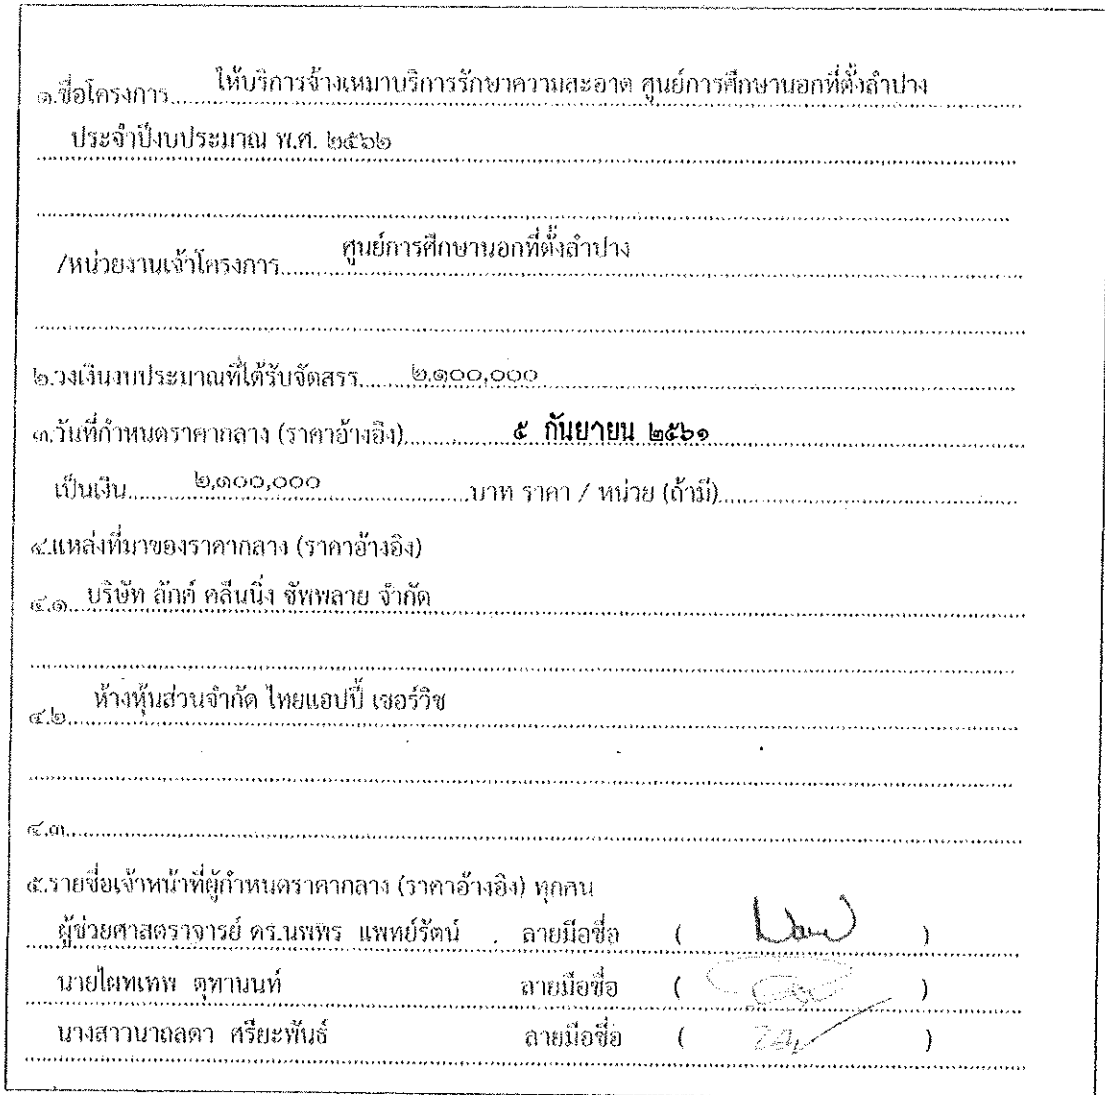 ๑.ชื่อโครงการ......ให้บริการจ้างเหมาบริการรักษาความสะอาด ศูนย์การศึกษานอกที่ตั้งลำปาง
ประจำปีงบประมาณ พ.ศ. ๒๕๖๒
/หน่วยงานเจ้าโครงการ......ศูนย์การศึกษานอกที่ตั้งลำปาง
๒.วงเงินงบประมาณที่ได้รับจัดสรร......๒,๑๐๐,๐๐๐
๓.วันที่กำหนดราคากลาง (ราคาอ้างอิง)......๕ กันยายน ๒๕๖๑
เป็นเงิน......๒,๑๐๐,๐๐๐......บาท ราคา / หน่วย (ถ้ามี)......
๔.แหล่งที่มาของราคากลาง (ราคาอ้างอิง)
๔.๑ บริษัท ลักค์ คลีนนิ่ง ซัพพลาย จำกัด
๔.๒ ห้างหุ้นส่วนจำกัด ไทยแอปปี้ เซอร์วิช
๔.๓
๕.รายชื่อเจ้าหน้าที่ผู้กำหนดราคากลาง (ราคาอ้างอิง) ทุกคน
ผู้ช่วยศาสตราจารย์ ดร.นพพร แพทย์รัตน์ ลายมือชื่อ ( )
นายไผทเทพ ตุทานนท์ ลายมือชื่อ ( )
นางสาวนาถลดา ศรียะพันธ์ ลายมือชื่อ ( )